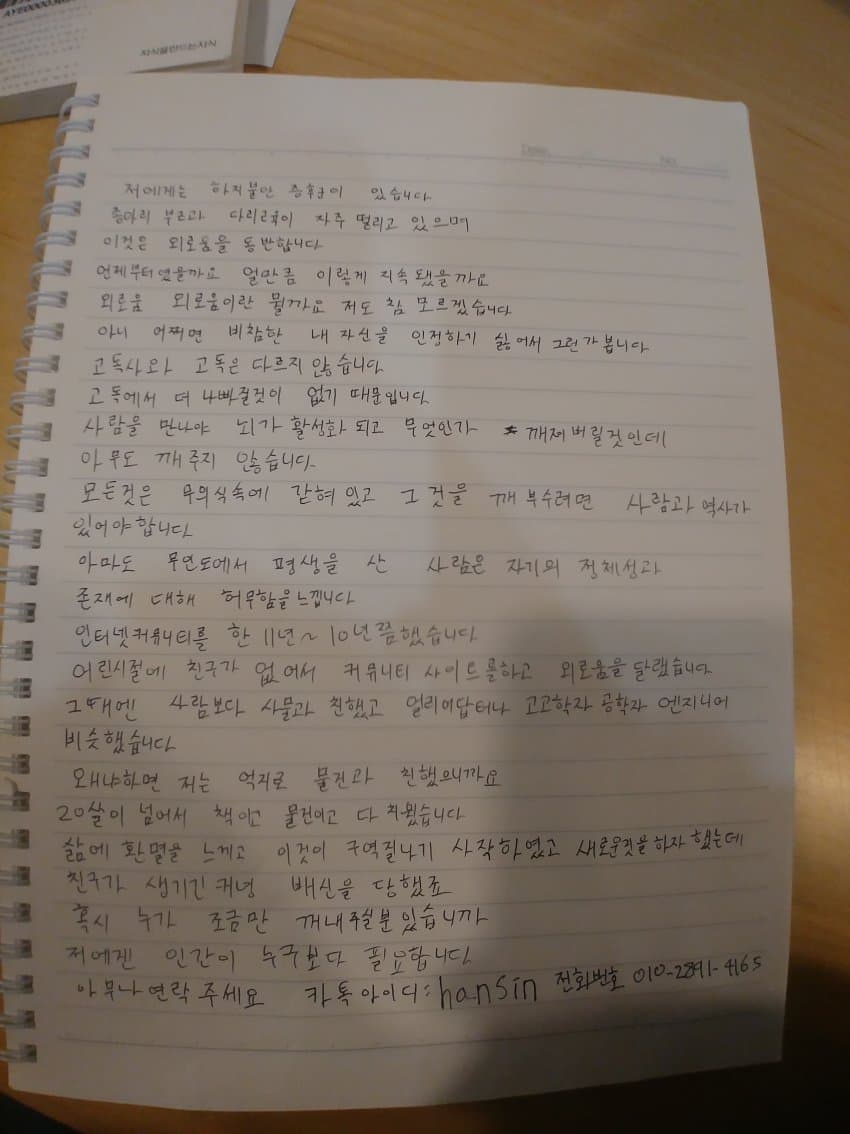 AY60000
지식을만드는지식
Date
No
저에게는 하지불안 증후군이 있습니다
종아리 부근과 다리근육이 자주 떨리고 있으며
이것은 외로움을 동반합니다
언제부터였을까요 얼만큼 이렇게 지속됐을까요
외로움 외로움이란 뭘까요 저도 참 모르겠습니다
아니 어쩌면 비참한 내 자신을 인정하기 싫어서 그런가 봅니다
고독사와 고독은 다르지 않습니다
고독에서 더 나빠질것이 없기 때문입니다
사람을 만나야 뇌가 활성화 되고 무엇인가 깨져버릴것인데
아무도 깨 주지 않습니다
모든것은 무의식속에 갇혀있고 그것을 깨 부수려면 사람과 역사가
있어야합니다
아마도 무인도에서 평생을 산 사람은 자기의 정체성과
존재에 대해 허무함을느낍니다
인터넷커뮤니티를 한 11년~10년쯤했습니다
어린시절에 친구가 없어서 커뮤니티 사이트를하고 외로움을 달랬습니다
그때엔 사람보다 사물과 친했고 얼리어답터나 고고학자 공학자 엔지니어
비슷했습니다
왜냐하면 저는 억지로 물건과 친했으니까요
20살이 넘어서 책이고 물건이고 다 치웠습니다
삶에 환멸을 느끼고 이것이 구역질나기 시작하였고 새로운것을하자 했는데
친구가 생기긴 커녕 배신을 당했죠
혹시 누가 조금만 꺼내주실분 있습니까
저에겐 인간이 누구보다 필요합니다
아무나 연락 주세요 카톡아이디:hansin 전화번호 010-2891-4165